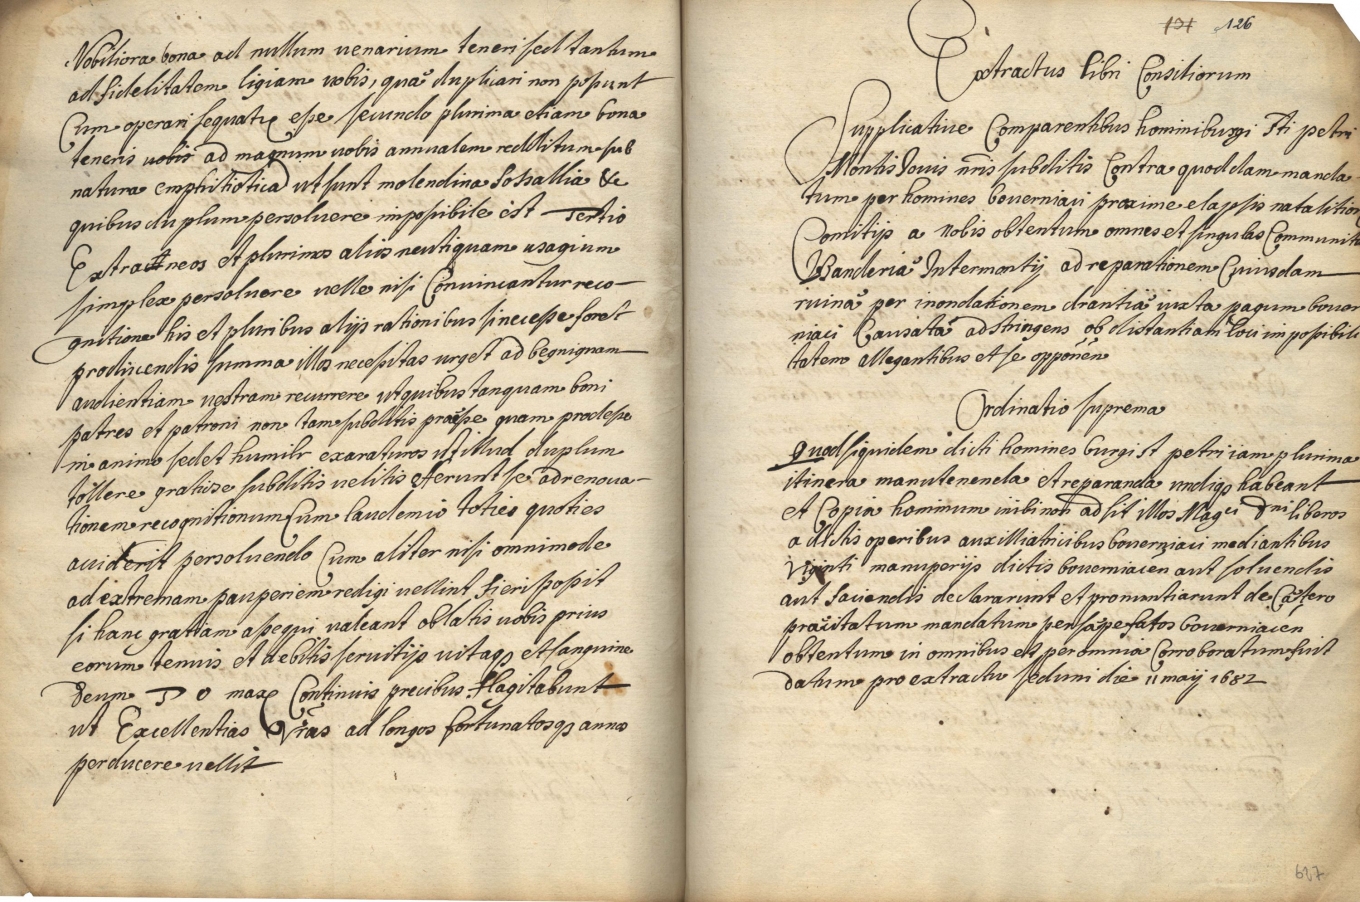 Nobiliora bona ad nullum uenarium teneri sed tantum
ad fidelitatem ligiam uobis, quæ duplicari non possunt
Cum operari sequatur esse secundo plurima etiam bona
teneris uobis ad magnum uobis annualem redditum sub
natura emphitiotica ut sunt molendina fossallia &c
quibus duplum persoluere impossibile est Tertio
Extraneos et plurimos alios neutiquam usagium
simplex persoluere uelle nisi Conuincantur reco-
gnitione his et pluribus alijs rationibus si necesse foret
producendis summa illos necessitas urget ad begnignam
audientiam uestram recurrere ut quibus tanquam boni
patres et patroni non tam subditis præesse quam prodesse
in animo sed et humilr exaraturos ut illud duplum
tollere gratiose subditis uelitis offerunt se ad renoua-
tionem recognitionum Cum laudemio toties quoties
acciderit persoluendo Cum aliter nisi omnimode
ad extremam pauperiem redigi uellint fieri possit
si hanc gratiam assequi ualeant oblatis uobis prius
eorum tenuis et debitis seruitijs uitaq et sanguine
Deum T O max Continuis precibus flagitabunt
ut Excellentias Vras ad longos fortunatosq annos
perducere uellit
121 126
Extractus libri Consiliorum
Supplicatiue Comparentibus hominibus Sti petri
Montis Jouis nris subditis Contra quoddam manda-
tum per homines bouerniaci proxime elapsis natalitiors
Comitijs a nobis obtentum omnes et singulas Communit
Banderiæ Intermontij ad reparationem Cuiusdam
ruinæ per inondationem drantiæ iuxta pagum bouer
niaci Causatæ adstringens ob distantiam loci impossibili
tatem allegantibus et se opponen
Ordinatio suprema
Quod siquidem dicti homines burgi St petri iam plurima
itinera manutenenda et reparanda undiq habeant
et Copia hominum inibi non adsit illos Magci Dni liberos
a dictis operibus auxilliatricibus bouerniaci mediantibus
Viginti manuperijs dictis bouerniacen aut soluendis
aut faciendis declararunt et pronuntiarunt de Cætero
præcitatum mandatum per sæpefatos bouerniacen
obtentum in omnibus et per omnia Corroboratum fuit
Datum pro extractu seduni die 11 maij 1682
627